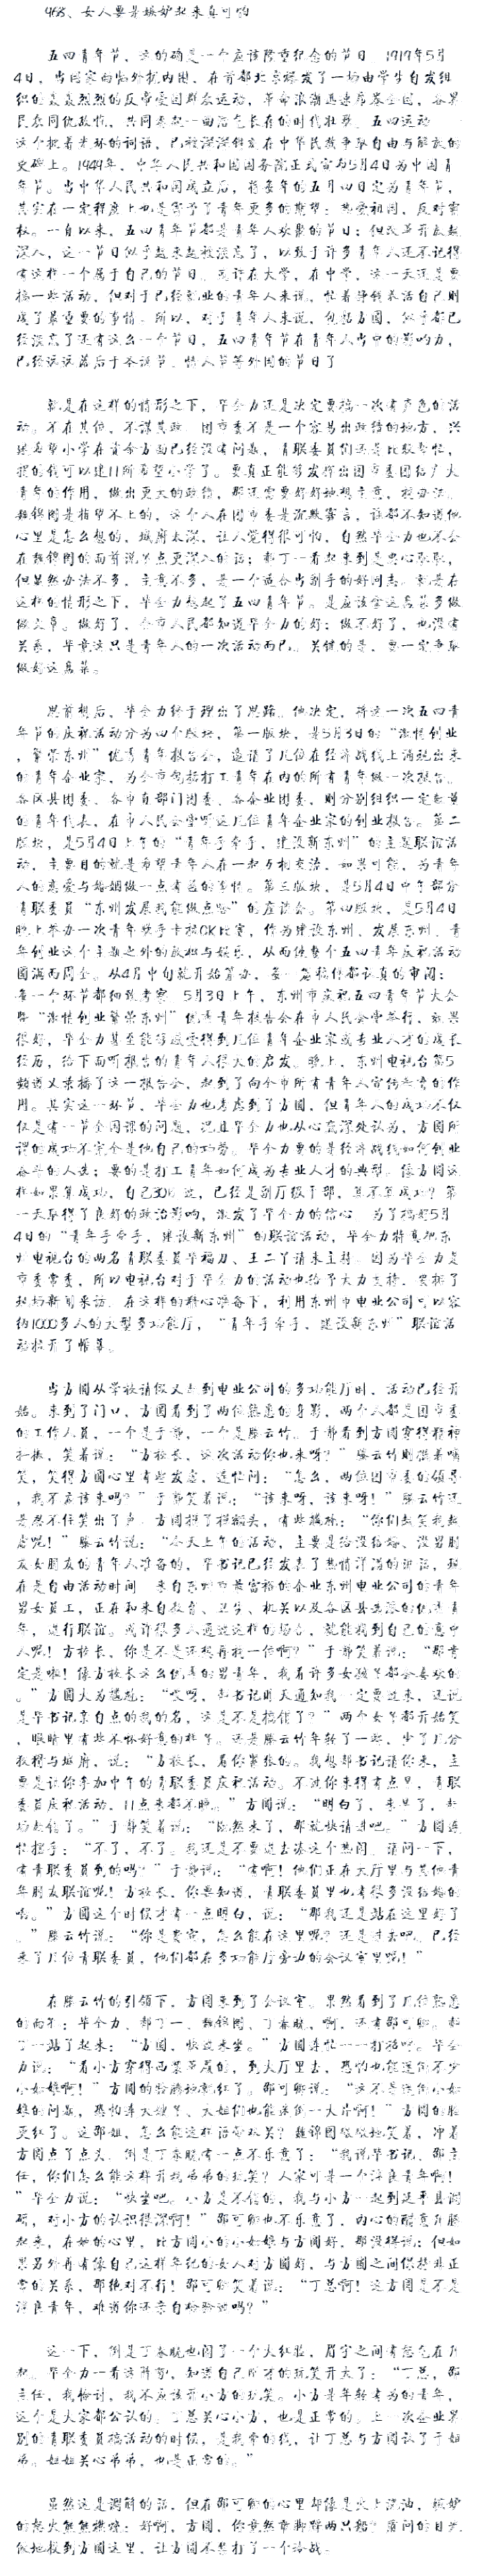 468、女人要是嫉妒起来真可怕
五四青年节，这的确是一个应该隆重纪念的节日。1919年5月
4日，当国家面临外扰内困，在首都北京爆发了一场由学生自发组
织的轰轰烈烈的反帝爱国群众运动，革命浪潮迅速席卷全国，各界
民众同仇敌忾，共同奏起一曲浩气长存的时代壮歌。五四运动——
这个披着光环的词语，已被深深斜刻在中华民族争取自由与解放的
史碑上。1949年，中华人民共和国国务院正式宣布5月4日为中国青
年节。当中华人民共和国成立后，将每年的五月四日定为青年节，
其实在一定程度上也是寄予了青年更多的期望：热爱祖国，反对霸
权。一直以来，五四青年节都是青年人欢聚的节日；但改革开放越
深入，这一节日似乎越来越被淡忘了，以致于许多青年人还不记得
有这样一个属于自己的节日。或许在大学，在中学，这一天还是要
搞一些活动，但对于已经就业的青年人来说，忙着挣钱养活自己则
成了最重要的事情。所以，对于青年人来说，包括方圆，似乎都已
经淡忘了还有这么一个节日，五四青年节在青年人当中的影响力，
已经远远落后于圣诞节、情人节等外国的节日了
就是在这样的情形之下，毕全力还是决定要搞一次有声色的活
动。不在其位，不谋其政。团市委不是一个容易出政绩的地方，兴
建希望小学在资金方面已经没有问题，青联委员们还是比较帮忙，
捐的钱可以建11所希望小学了。要真正能够发挥出团市委团结广大
青年的作用，做出更大的政绩，那还需要好好地想主意，找办法。
魏锦图是指望不上的，这个人在团市委是沉默寡言，谁都不知道他
心里是怎么想的，城府太深，让人觉得很可怕，自然毕全力也不会
在魏锦图的面前说半点更深入的话；郝了一看起来倒是忠心耿耿，
但显然办法不多，主意不多，是一个适合当副手的好同志。就是在
这样的情形之下，毕全力想起了五四青年节。是应该拿这盘菜多做
做文章。做好了，全市人民都知道毕全力的好；做不好了，也没有
关系，毕竟这只是青年人的一次活动而已。关键的是，要一定争取
做好这盘菜。
思前想后，毕全力终于理出了思路。他决定，将这一次五四青
年节的庆祝活动分为四个版块，第一版块，是5月3日的“激情创业
，繁荣东州”优秀青年报告会，邀请了几位在经济战线上涌现出来
的青年企业家，为全市包括打工青年在内的所有青年做一次报告。
各区县团委、各市直部门团委、各企业团委，则分别组织一定数量
的青年代表，在市人民会堂听这几位青年企业家的创业报告。第二
版块，是5月4日上午的“青年手牵手，建设新东州”的主题联谊活
动，主要目的就是希望青年人在一起互相交流，如果可能，为青年
人的恋爱与婚姻做一点有益的事情。第三版块，是5月4日中午部分
青联委员“东州发展我能做点啥”的座谈会。第四版块，是5月4日
晚上举办一次青年歌手卡拉OK比赛，作为建设东州、发展东州、青
年创业这个主题之外的放松与娱乐，从而使整个五四青年庆祝活动
圆满而周全。从4月中旬就开始筹办，每一篇稿件都认真的审阅；
每一个环节都细致考察。5月3日上午，东州市庆祝五四青年节大会
暨“激情创业繁荣东州”优秀青年报告会在市人民会堂举行，效果
很好，毕全力甚至能够感受得到几位青年企业家或专业人才的成长
经历，给下面听报告的青年人很大的启发。晚上，东州电视台第5
频道又录播了这一报告会，起到了向全市所有青年人宣传教育的作
用。其实这一环节，毕全力也考虑到了方圆，但青年人的成功不仅
仅是有一节全国课的问题，况且毕全力也从心底深处认为，方圆所
谓的成功不完全是他自己的功劳。毕全力要的是经济战线如何创业
奋斗的人选；要的是打工青年如何成为专业人才的典型。像方圆这
样如果算成功，自己30刚过，已经是副厅级干部，算不算成功？第
一天取得了良好的政治影响，激发了毕全力的信心。为了搞好5月
4日的“青年手牵手，建设新东州”的联谊活动，毕全力特意把东
州电视台的两名青联委员毕福刀、王二丫请来主持。因为毕全力是
市委常委，所以电视台对于毕全力的活动也给予大力支持，安排了
现场新闻采访。在这样的精心准备下，利用东州市电业公司可以容
纳1000多人的大型多功能厅，“青年手牵手，建设新东州”联谊活
动拉开了帷幕。
当方圆从学校请假又赶到电业公司的多功能厅时，活动已经开
始。来到了门口，方圆看到了两位熟悉的身影，两个人都是团市委
的工作人员，一个是于静，一个是滕云竹。于静看到方圆穿得精神
抖擞，笑着说：“方校长，这次活动你也来呀？”滕云竹则抿着嘴
笑，笑得方圆心里有些发虚，连忙问：“怎么，两位团市委的领导
，我不应该来吗？”于静笑着说：“该来呀，该来呀！”滕云竹还
是忍不住笑出了声。方圆挠了挠额头，有些尴尬：“你们越笑我越
虚呢！”滕云竹说：“今天上午的活动，主要是给没结婚、没男朋
友女朋友的青年人准备的，毕书记已经发表了热情洋溢的讲话，现
在是自由活动时间。来自东州市最富裕的企业东州电业公司的青年
男女员工，正在和来自教育、卫生、机关以及各区县选派的优秀青
年，进行联谊。或许很多人通过这样的场合，就能找到自己的意中
人呢！方校长，你是不是还想再找一位啊？”于静笑着说：“那肯
定是啦！像方校长这么优秀的男青年，我看许多女孩子都会喜欢的
。”方圆大为尴尬：“哎呀，郝书记昨天通知我一定要过来，还说
是毕书记亲自点的我的名，这是不是搞错了？”两个女子都开始笑
，眼睛里有些不怀好意的样子。还是滕云竹年轻了一些，少了几分
狡猾与城府，说：“方校长，看你紧张的。我想郝书记请你来，主
要是让你参加中午的青联委员庆祝活动。不过你来得有点早，青联
委员庆祝活动，11点来都不晚。”方圆说：“明白了，来早了，走
场走错了。”于静笑着说：“既然来了，那就快请进吧。”方圆连
忙摆手：“不了，不了。我还是不要进去凑这个热闹。请问一下，
有青联委员到的吗？”于静说：“有啊！他们正在大厅里与其他青
年朋友联谊呢！方校长，你要知道，青联委员里也有很多没结婚的
啊。”方圆这个时候才有一点明白，说：“那我还是站在这里好了
。”滕云竹说：“你是贵宾，怎么能在这里呢？还是进去吧。已经
来了几位青联委员，他们都在多功能厅旁边的会议室里呢！”
在滕云竹的引领下，方圆来到了会议室。果然看到了几位熟悉
的面孔：毕全力、郝了一、魏锦图、丁春晓，啊，还有邵可卿。郝
了一站了起来：“方圆，快过来坐。”方圆连忙一一打招呼。毕全
力说：“看小方穿得西装革履的，到大厅里去，恐怕也能迷倒不少
小姑娘啊！”方圆的脸腾地就红了。邵可卿说：“这不是迷倒小姑
娘的问题，恐怕连大嫂子、大姐们也能迷倒一大片啊！”方圆的脸
更红了。这邵姐，怎么能这样话带双关？魏锦图微微地笑着，冲着
方圆点了点头，倒是丁春晓有一点不乐意了：“我说毕书记、邵主
任，你们怎么能这样开我弟弟的玩笑？人家可是一个洋良青年啊！
”毕全力说：“快坐吧。小方是不错的，我与小方一起到延平县调
研，对小方的认识很深啊！”邵可卿也不乐意了，内心的醋意升腾
起来，在她的心里，比方圆小的小姑娘与方圆好，那没得说；但如
果另外再有像自己这样年纪的女人对方圆好，与方圆之间保持非正
常的关系，那绝对不行！邵可卿笑着说：“丁总啊！这方圆是不是
洋良青年，难道你还亲自检验过吗？”
这一下，倒是丁春晓也闹了一个大红脸，眉宇之间有怒色在升
起。毕全力一看这阵势，知道自己刚才的玩笑开大了：“丁总，邵
主任，我检讨，我不应该开小方的玩笑。小方是年轻有为的青年，
这个是大家都公认的。丁总关心小方，也是正常的。上一次企业界
别的青联委员搞活动的时候，是我牵的线，让丁总与方圆认了干姐
弟。姐姐关心弟弟，也是正常的。”
虽然这是调解的话，但在邵可卿的心里却像是火上浇油，嫉妒
的怒火熊熊燃烧：好啊，方圆，你竟然敢脚踏两只船？质问的目光
似地投到方圆这里，让方圆不禁打了一个冷战。